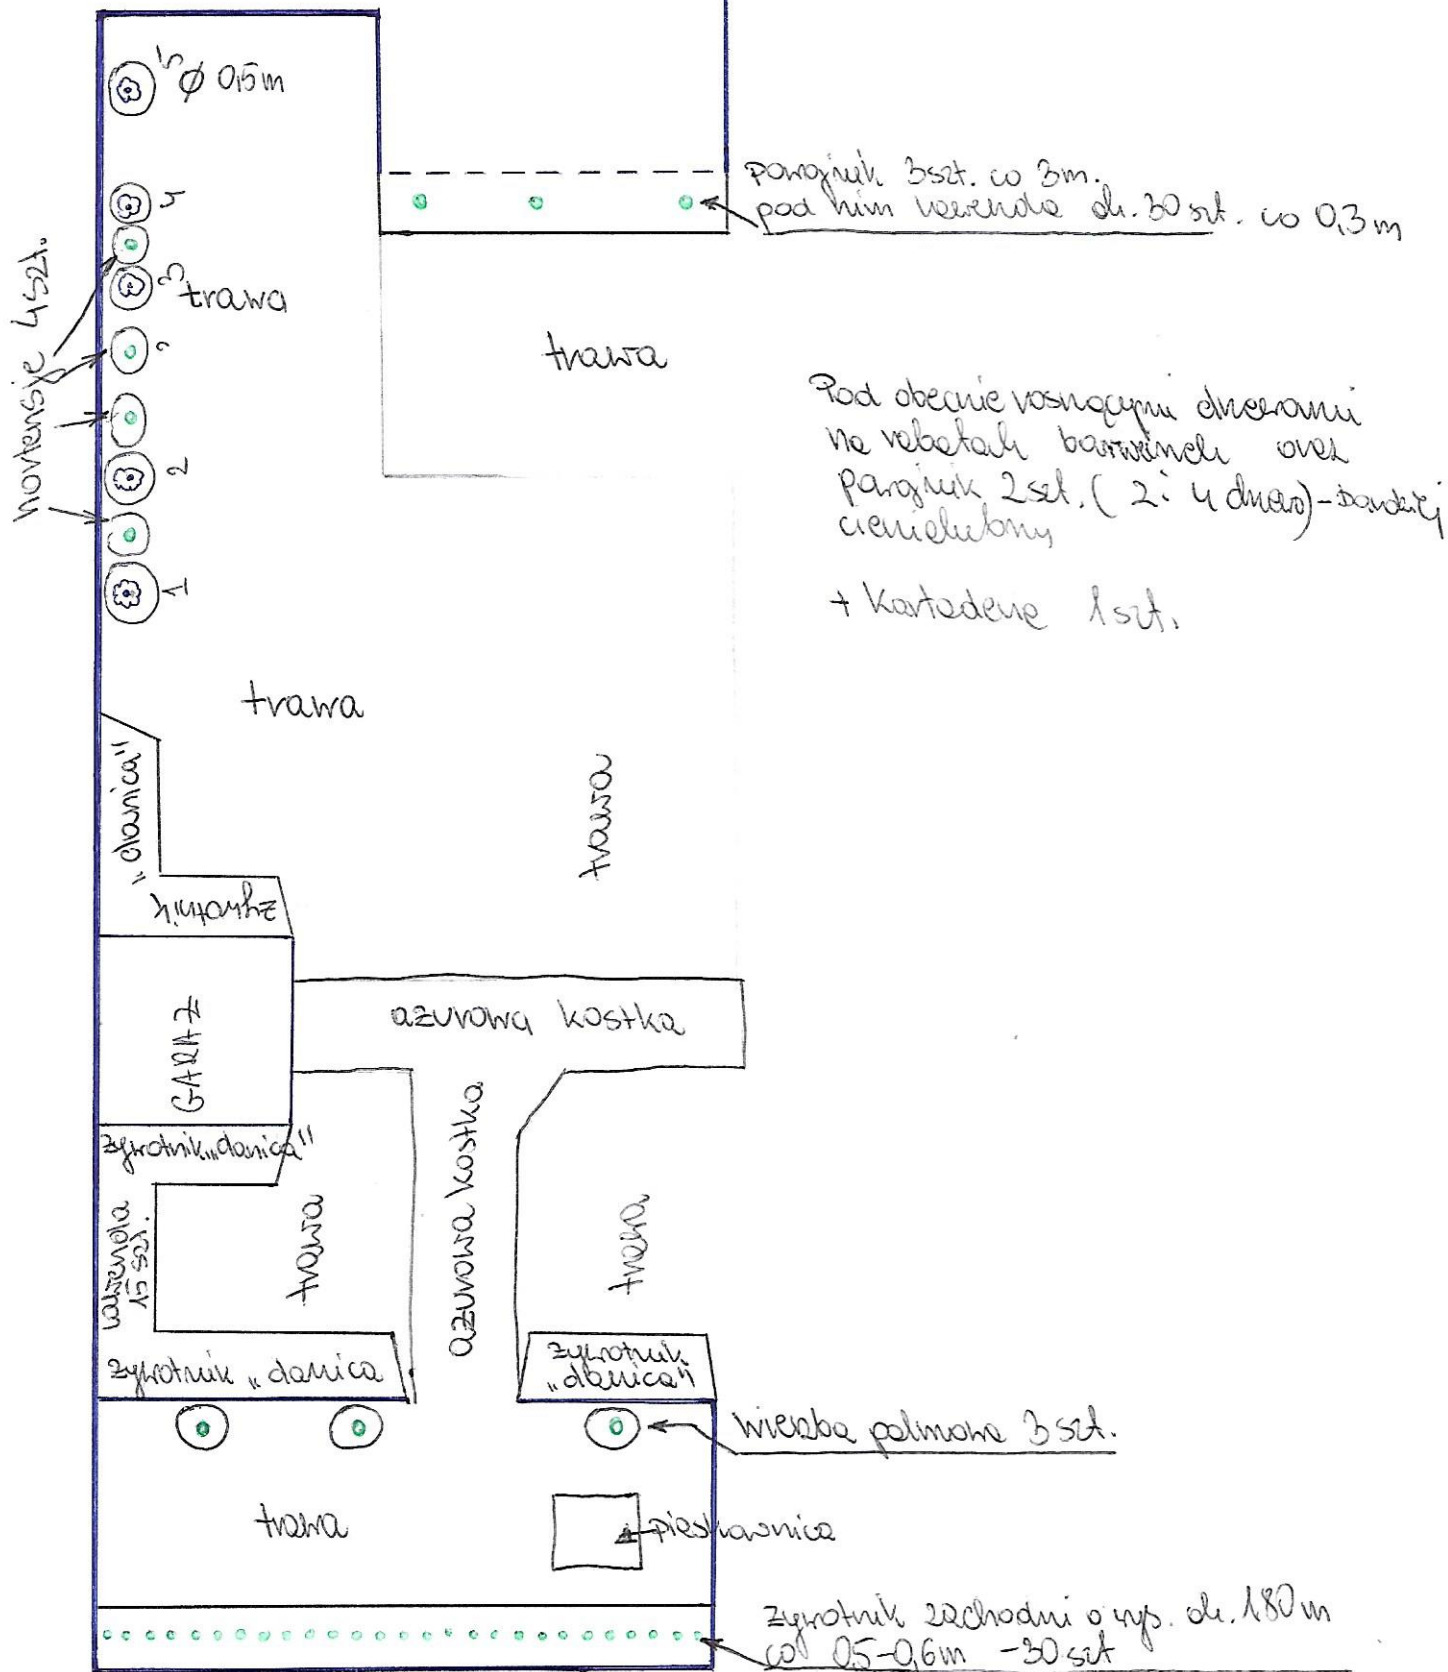 5
Ø 0,5 m
4
hortensje 4 szt.
3
trawa
2
1
parąjnik 3szt. co 3m.
pod nim lawenda ok. 30 szt. co 0,3 m
trawa
Pod obecnie rosnącymi drzewami
na rabatach barwinek oraz
parąjnik 2szt. (2 i 4 drzewo) - bardziej
cieniolubny
+ 1 szt.
trawa
trawa
"danica"
żywotnik
GARAŻ
ażurowa kostka
ażurowa kostka
żywotnik "danica"
lawenda
15 szt.
trawa
trawa
żywotnik "danica
żywotnik
"danica"
wierzba palmowa 3 szt.
trawa
piaskownica
żywotnik zachodni o wys. ok. 1,80 m
co 0,5-0,6m - 30 szt